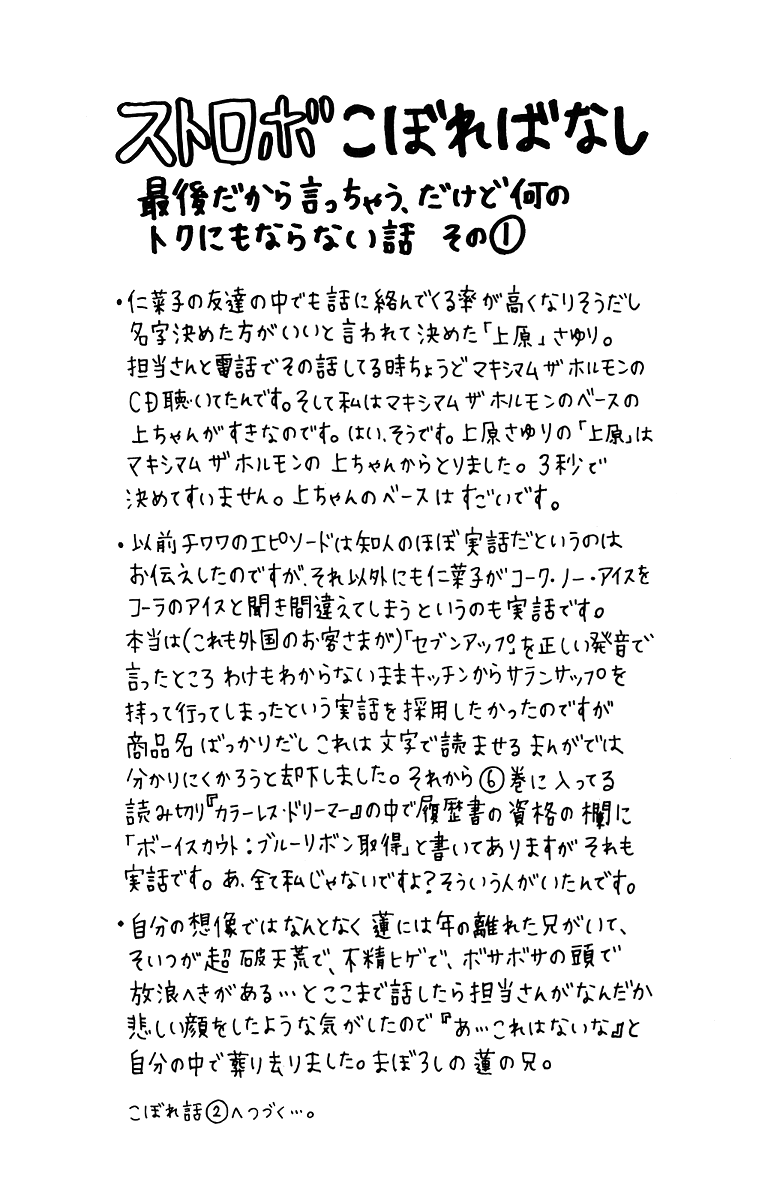 ストロボこぼればなし
最後だから言っちゃう、だけど何の
トクにもならない話 その①
・仁菜子の友達の中でも話に絡んでくる率が高くなりそうだし
名字決めた方がいいと言われて決めた「上原」さゆり。
担当さんと電話でその話してる時ちょうどマキシマムザホルモンの
CD聴いてたんです。そして私はマキシマムザホルモンのベースの
上ちゃんがすきなのです。はい、そうです。上原さゆりの「上原」は
マキシマムザホルモンの上ちゃんからとりました。3秒で
決めてすいません。上ちゃんのベースはすごいです。
・以前チワワのエピソードは知人のほぼ実話だというのは
お伝えしたのですが、それ以外にも仁菜子がコーク・ノー・アイスを
コーラのアイスと聞き間違えてしまうというのも実話です。
本当は(これも外国のお客さまが)「セブンアップ」を正しい発音で
言ったところわけもわからないままキッチンからサランサップを
持って行ってしまったという実話を採用したかったのですが
商品名ばっかりだしこれは文字で読ませるまんがでは
分かりにくかろうと却下しました。それから⑥巻に入ってる
読み切り『カラーレス・ドリーマー』の中で履歴書の資格の欄に
「ボーイスカウト:ブルーリボン取得」と書いてありますがそれも
実話です。あ、全て私じゃないですよ?そういう人がいたんです。
・自分の想像ではなんとなく蓮には年の離れた兄がいて、
そいつが超破天荒で、不精ヒゲで、ボサボサの頭で
放浪へきがある…とここまで話したら担当さんがなんだか
悲しい顔をしたような気がしたので『あ…これはないな』と
自分の中で葬り去りました。まぼろしの蓮の兄。
こぼれ話②へつづく…。